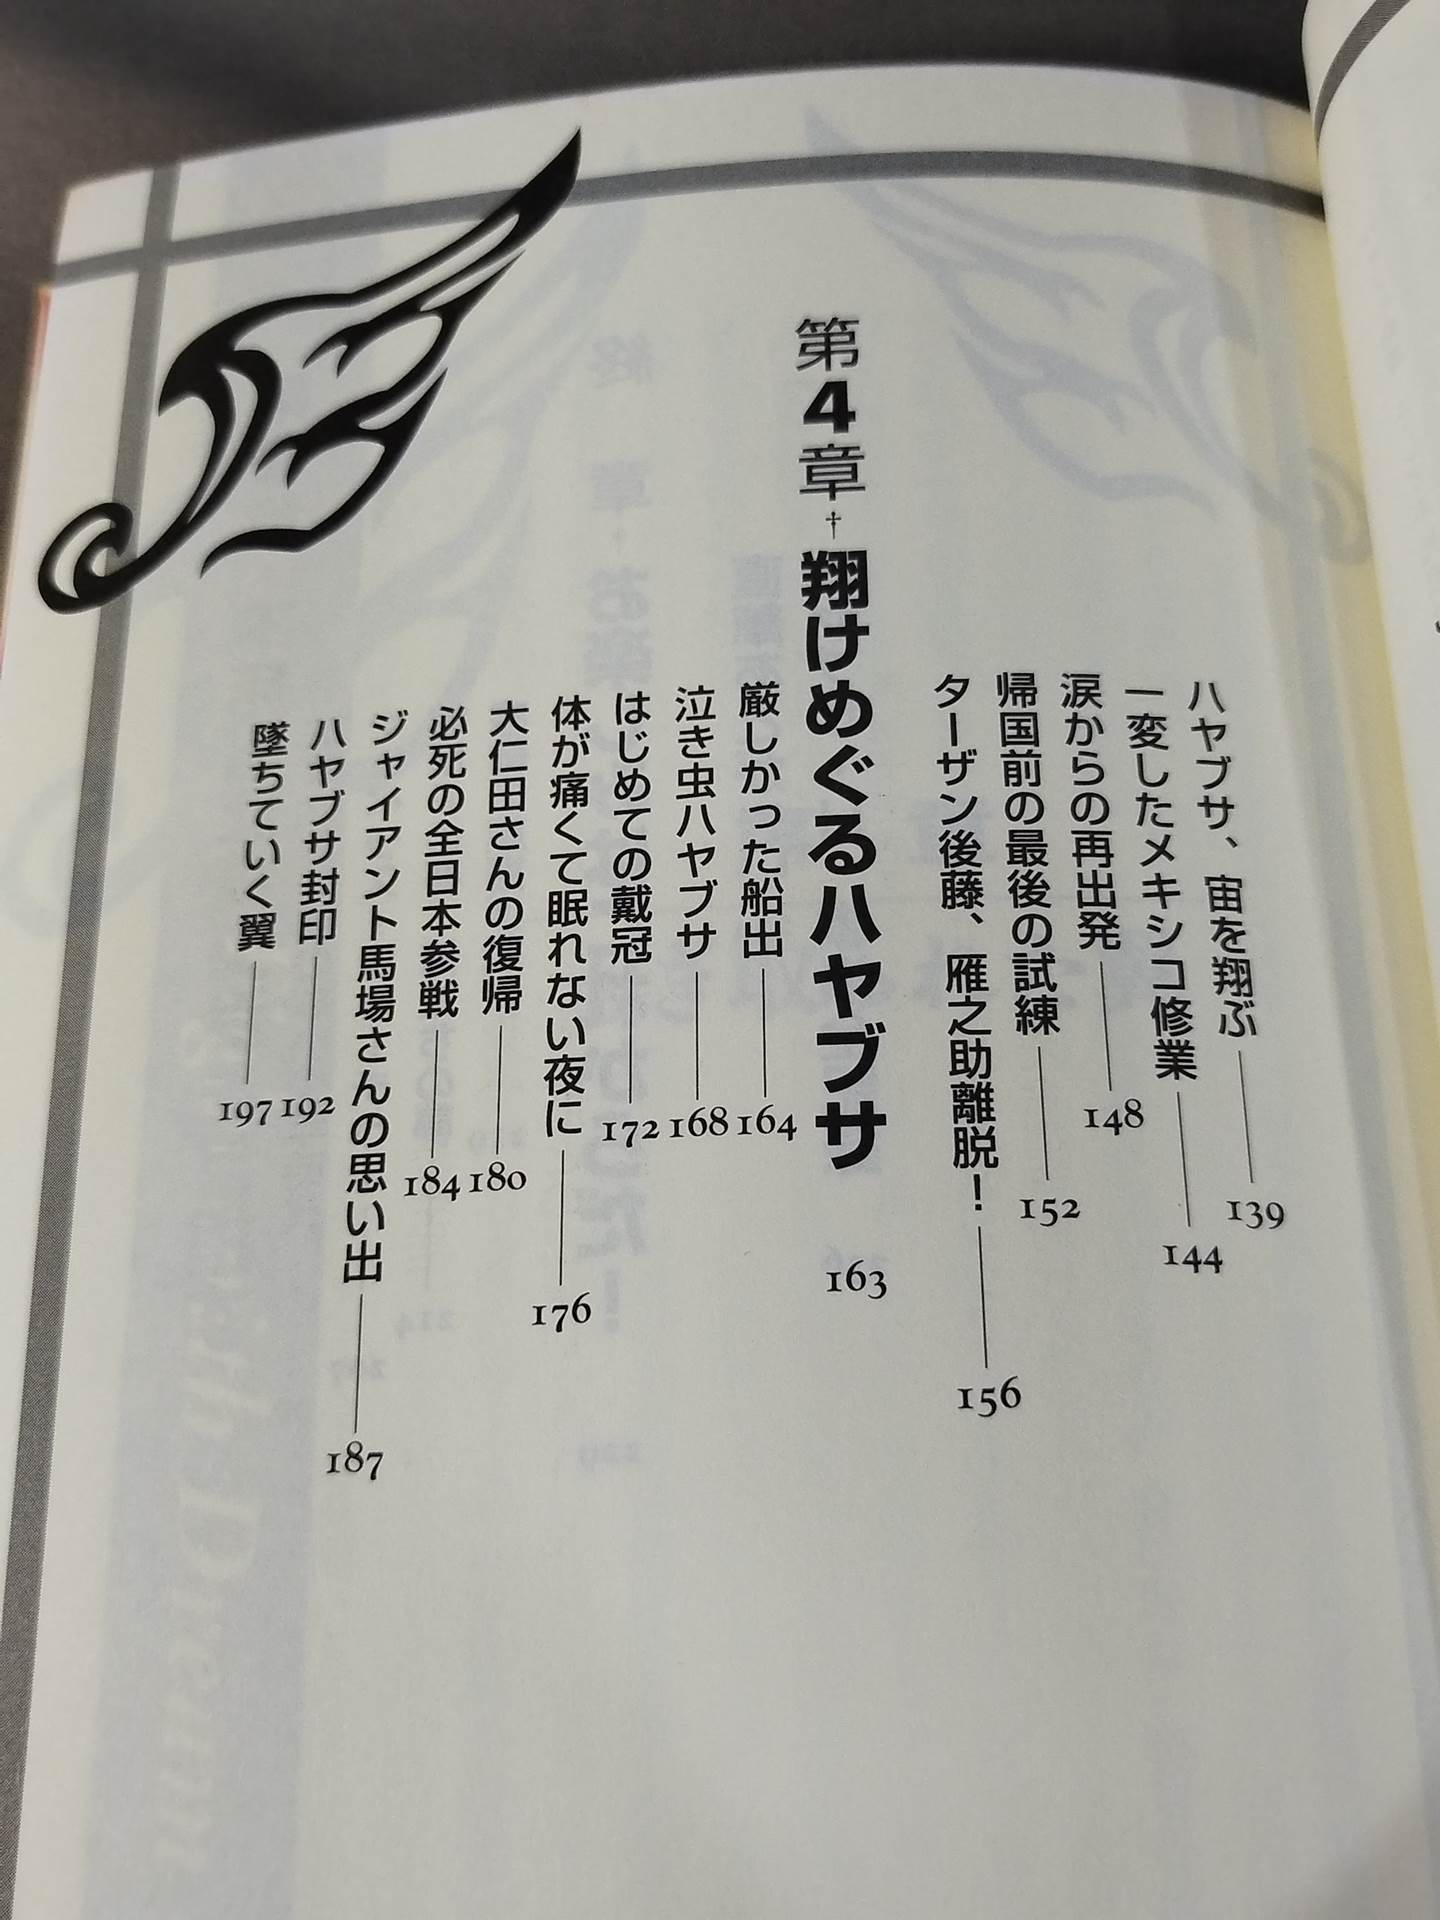 ハヤブサ、宙を翔ぶ 139
一変したメキシコ修業 144
涙からの再出発 148
帰国前の最後の試練 152
ターザン後藤、雁之助離脱！ 156
第4章†翔けめぐるハヤブサ 163
厳しかった船出 164
泣き虫ハヤブサ 168
はじめての戴冠 172
体が痛くて眠れない夜に 176
大仁田さんの復帰 180
必死の全日本参戦 184
ジャイアント馬場さんの思い出 187
ハヤブサ封印 192
墜ちていく翼 197